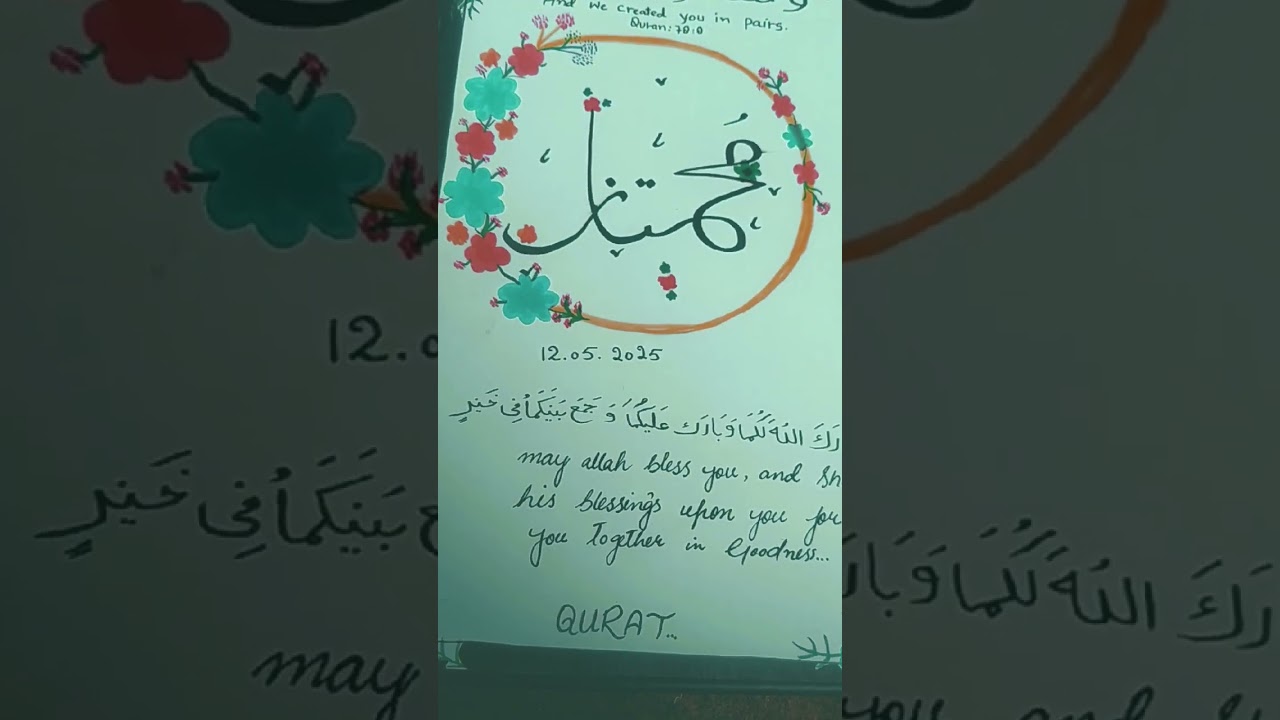 And We created you in pairs.
Quran:78:8
مُمتاز
12.05.2025
رَكَ اللهُ لَكُمَا وَبَارَك عَلَيكُمَا وَ جَمَعَ بَينَكُمَا فِي خَيرٍ
may allah bless you, and sh
his blessings upon you
you together in Goodness...
QURAT...